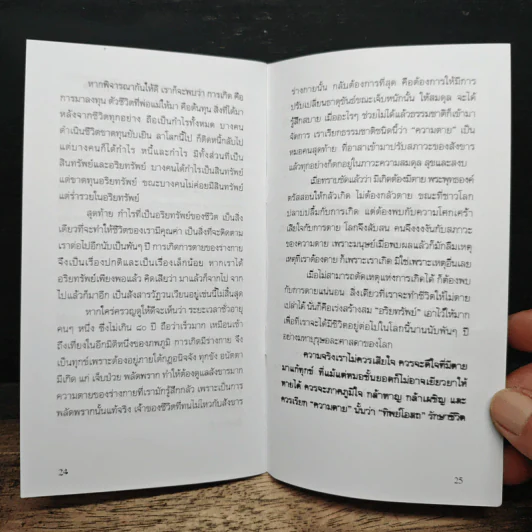 หากพิจารณากันให้ดี เราก็จะพบว่า การเกิด คือ
การมาลงทุน ตัวชีวิตที่พ่อแม่ให้มา คือต้นทุน สิ่งที่ได้มา
หลังจากชีวิตทุกอย่าง ถือเป็นกำไรทั้งหมด บางคน
ดำเนินชีวิตขาดทุนยับเยิน ลาโลกนี้ไป ก็ติดหนี้กลับไป
แต่บางคนก็ได้กำไร หนี้และกำไร มีทั้งส่วนที่เป็น
สินทรัพย์และอริยทรัพย์ บางคนได้กำไรเป็นสินทรัพย์
แต่ขาดทุนอริยทรัพย์ ขณะบางคนไม่ค่อยมีสินทรัพย์
แต่ร่ำรวยในอริยทรัพย์
สุดท้าย กำไรที่เป็นอริยทรัพย์ของชีวิต เป็นสิ่ง
เดียวที่จะทำให้ชีวิตของเรามีคุณค่า เป็นสิ่งที่จะติดตาม
เราต่อไปอีกนับเป็นพันๆ ปี การเกิดการตายของร่างกาย
จึงเป็นเรื่องปกติและเป็นเรื่องเล็กน้อย หากเราได้
อริยทรัพย์เพียงพอแล้ว คิดเสียว่า มาแล้วก็จากไป จาก
ไปแล้วก็มาอีก เป็นสังสารวัฏวนเวียนอยู่เช่นนี้ไม่สิ้นสุด
หากใคร่ครวญดูให้ดีจะเห็นว่า ระยะเวลาชั่วอายุ
คนๆ หนึ่ง ซึ่งไม่เกิน ๘๐ ปี ถือว่าเร็วมาก เหมือนเช้า
ถึงเที่ยงในอีกมิติหนึ่งของภพภูมิ การเกิดมีร่างกาย จึง
เป็นทุกข์เพราะต้องอยู่ภายใต้กฎอนิจจัง ทุกขัง อนัตตา
มีเกิด แก่ เจ็บป่วย พลัดพราก ทำให้ต้องดูแลสังขารมาก
ความตายของร่างกายที่เรามักรู้สึกกลัว เพราะเป็นการ
พลัดพรากนั้นแท้จริง เจ้าของชีวิตที่ทนไม่ไหวกับสังขาร
24
ร่างกายนั้น กลับต้องการที่สุด คือต้องการให้มีการ
ปรับเปลี่ยนธาตุขันธ์ขณะเจ็บหนักนั้น ให้สมดุล จะได้
รู้สึกสบาย เมื่ออะไรๆ ช่วยไม่ได้แล้วธรรมชาติก็เข้ามา
จัดการ เราเรียกธรรมชาติชนิดนี้ว่า "ความตาย" เป็น
หมอคนสุดท้าย ที่อาสาเข้ามาปรับสภาวะของสังขาร
แล้วทุกอย่างก็ตกอยู่ในภาวะความสมดุล สุขและสงบ
เมื่อทราบชัดแล้วว่า มีเกิดต้องมีตาย พระพุทธองค์
ตรัสสอนให้กลัวเกิด ไม่ต้องกลัวตาย ขณะที่ชาวโลก
ปลาบปลื้มกับการเกิด แต่ต้องพบกับความโศกเศร้า
เสียใจกับการตาย โลกจึงสับสน คนจึงงงงันกับสภาวะ
ของความตาย เพราะมนุษย์เมื่อพบผลแล้วก็มักลืมเหตุ
เหตุที่เราต้องตาย ก็เพราะเราเกิด มิใช่เพราะเหตุอื่นเลย
เมื่อไม่สามารถตัดเหตุแห่งการเกิดได้ ก็ต้องพบ
กับการตายแน่นอน สิ่งเดียวที่เราจะทำชีวิตให้ไม่ตาย
เปล่าได้ นั่นก็คือเร่งสร้างสม "อริยทรัพย์" เอาไว้ให้มาก
เพื่อที่เราจะได้มีชีวิตอยู่ต่อไปในโลกนี้นานนับพันๆ ปี
อย่างมหาบุรุษเอละศาสดาของโลก
ความจริงเราไม่ควรเสียใจ ควรจะดีใจที่มีตาย
มาแก้ทุกข์ ที่แม้แต่หมอชั้นยอดก็ไม่อาจเยียวยาให้
หายได้ ควรจะภาคภูมิใจ กล้าหาญ กล้าเผชิญ และ
ควรเรียก "ความตาย" นั้นว่า "ทิพย์โอสถ" รักษาชีวิต
25